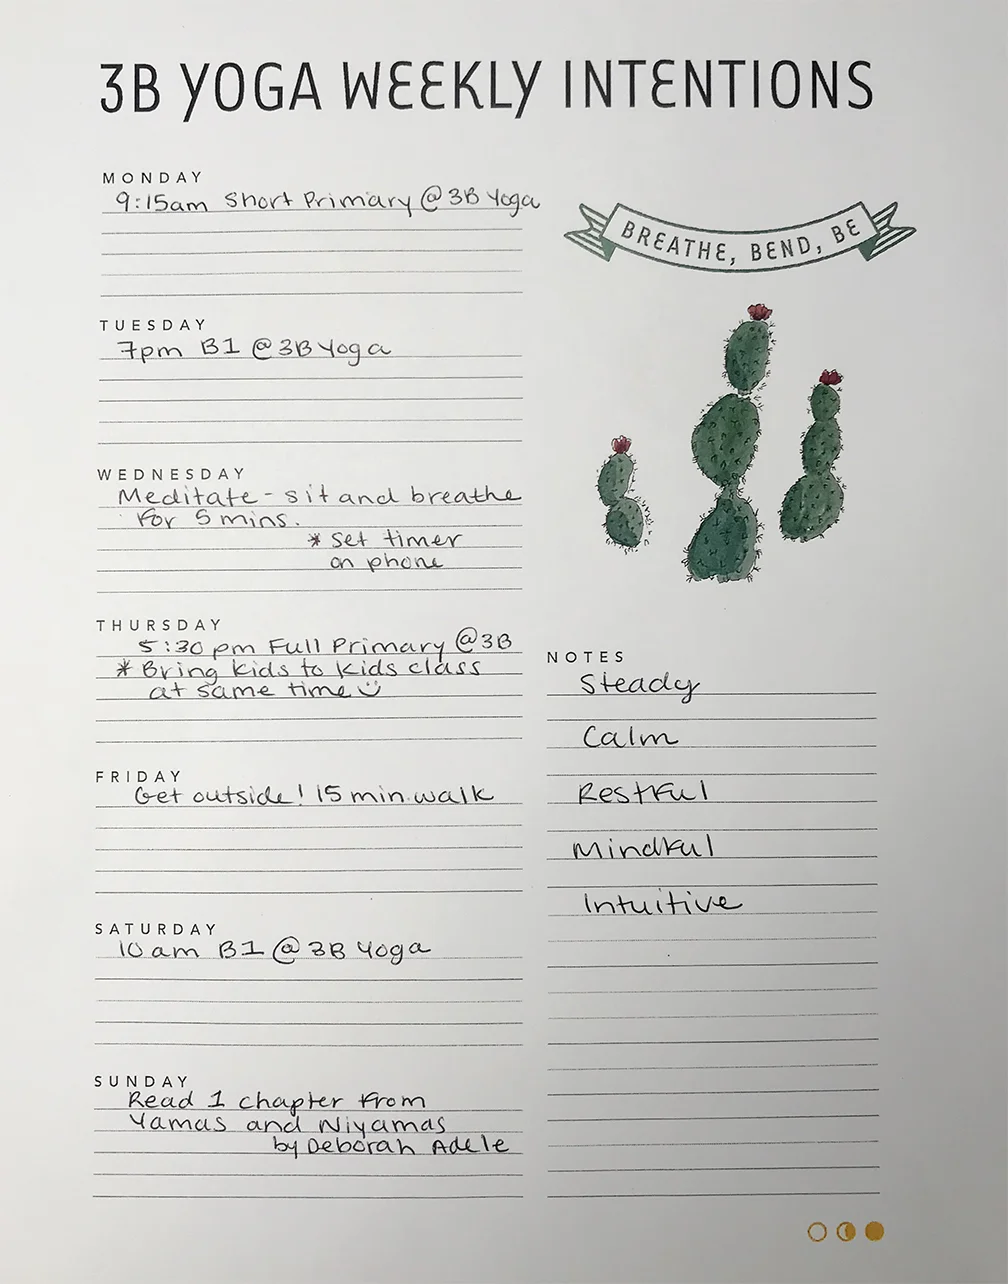 3B YOGA WEEKLY INTENTIONS
MONDAY
9:15am Short Primary @ 3B Yoga
TUESDAY
7pm B1 @ 3B Yoga
WEDNESDAY
Meditate - sit and breathe
for 5 mins.
* set timer
on phone
THURSDAY
5:30 pm Full Primary @ 3B
* Bring kids to kids class
at same time
FRIDAY
Get outside! 15 min. walk
SATURDAY
10 am B1 @ 3B Yoga
SUNDAY
Read 1 chapter from
Yamas and Niyamas
by Deborah Adele
BREATHE, BEND, BE
NOTES
Steady
Calm
Restful
Mindful
Intuitive